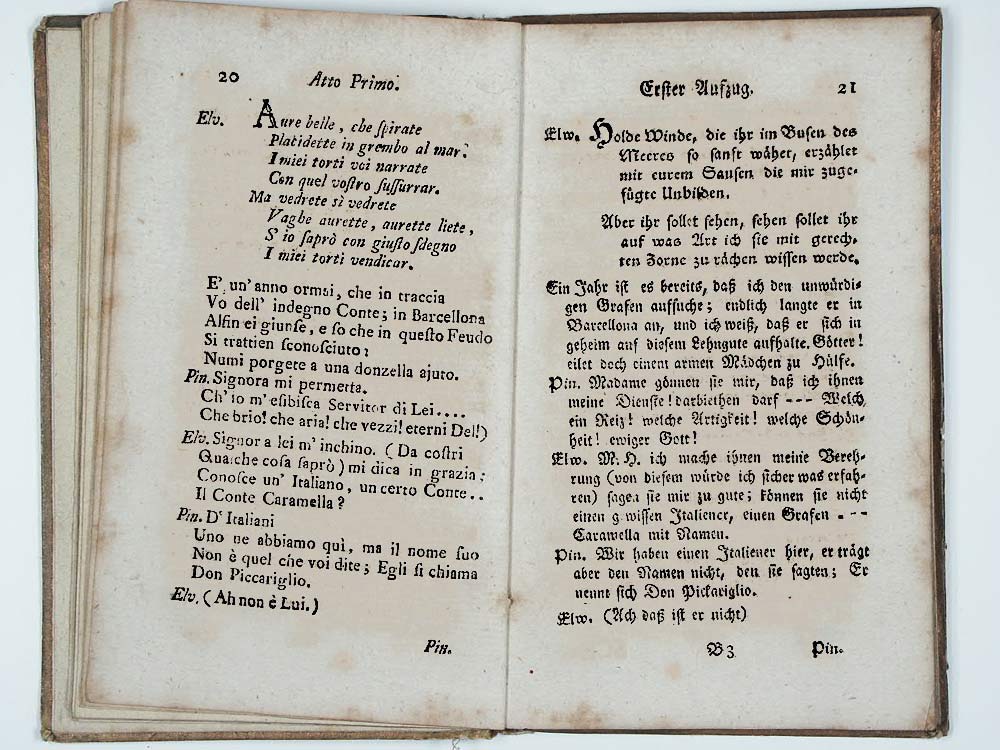 20 Atto Primo.
Elv. Aure belle, che ſpirate
Placidette in grembo al mar.
I miei torti voi narrate
Con quel voſtro ſuſſurrar.
Ma vedrete sì vedrete
Vaghe aurette, aurette liete,
S' io ſaprò con giuſto ſdegno
I miei torti vendicar.
E' un' anno ormai, che in traccia
Vo dell' indegno Conte; in Barcellona
Alfin ei giunſe, e ſo che in queſto Feudo
Si trattien ſconoſciuto:
Numi porgete a una donzella ajuto.
Pin. Signora mi permetta.
Ch' io m' eſibiſca Servitor di Lei....
Che brio! che aria! che vezzi! eterni Dei!)
Elv. Signor a lei m' inchino. (Da coſtri
Qualche coſa ſaprò) mi dica in grazia:
Conoſce un' Italiano, un certo Conte..
Il Conte Caramella?
Pin. D' Italiani
Uno ne abbiamo quì, ma il nome ſuo
Non è quel che voi dite; Egli ſi chiama
Don Piccariglio.
Elv. (Ah non è Lui.)
Pin.
Erſter Aufzug. 21
Elw. Holde Winde, die ihr im Buſen des
Meeres ſo ſanft wähet, erzählet
mit eurem Sauſen die mir zuge-
fügte Unbilden.
Aber ihr ſollet ſehen, ſehen ſollet ihr
auf was Art ich ſie mit gerech-
ten Zorne zu rächen wiſſen werde.
Ein Jahr iſt es bereits, daß ich den unwürdi-
gen Grafen aufſuche; endlich langte er in
Barcellona an, und ich weiß, daß er ſich in
geheim auf dieſem Lehngute aufhalte. Götter!
eilet doch einem armen Mädchen zu Hülfe.
Pin. Madame gönnen ſie mir, daß ich ihnen
meine Dienſte! darbiethen darf --- Welch
ein Reiz! welche Artigkeit! welche Schön-
heit! ewiger Gott!
Elw. M. H. ich mache ihnen meine Vereh-
rung (von dieſem würde ich ſicher was erfah-
ren) ſagen ſie mir zu gute; können ſie nicht
einen g wiſſen Italiener, einen Grafen ---
Carawella mit Namen.
Pin. Wir haben einen Italiener hier, er trägt
aber den Namen nicht, den ſie ſagten; Er
nennt ſich Don Pickariglio.
Elw. (Ach daß iſt er nicht)
B 3 Pin.